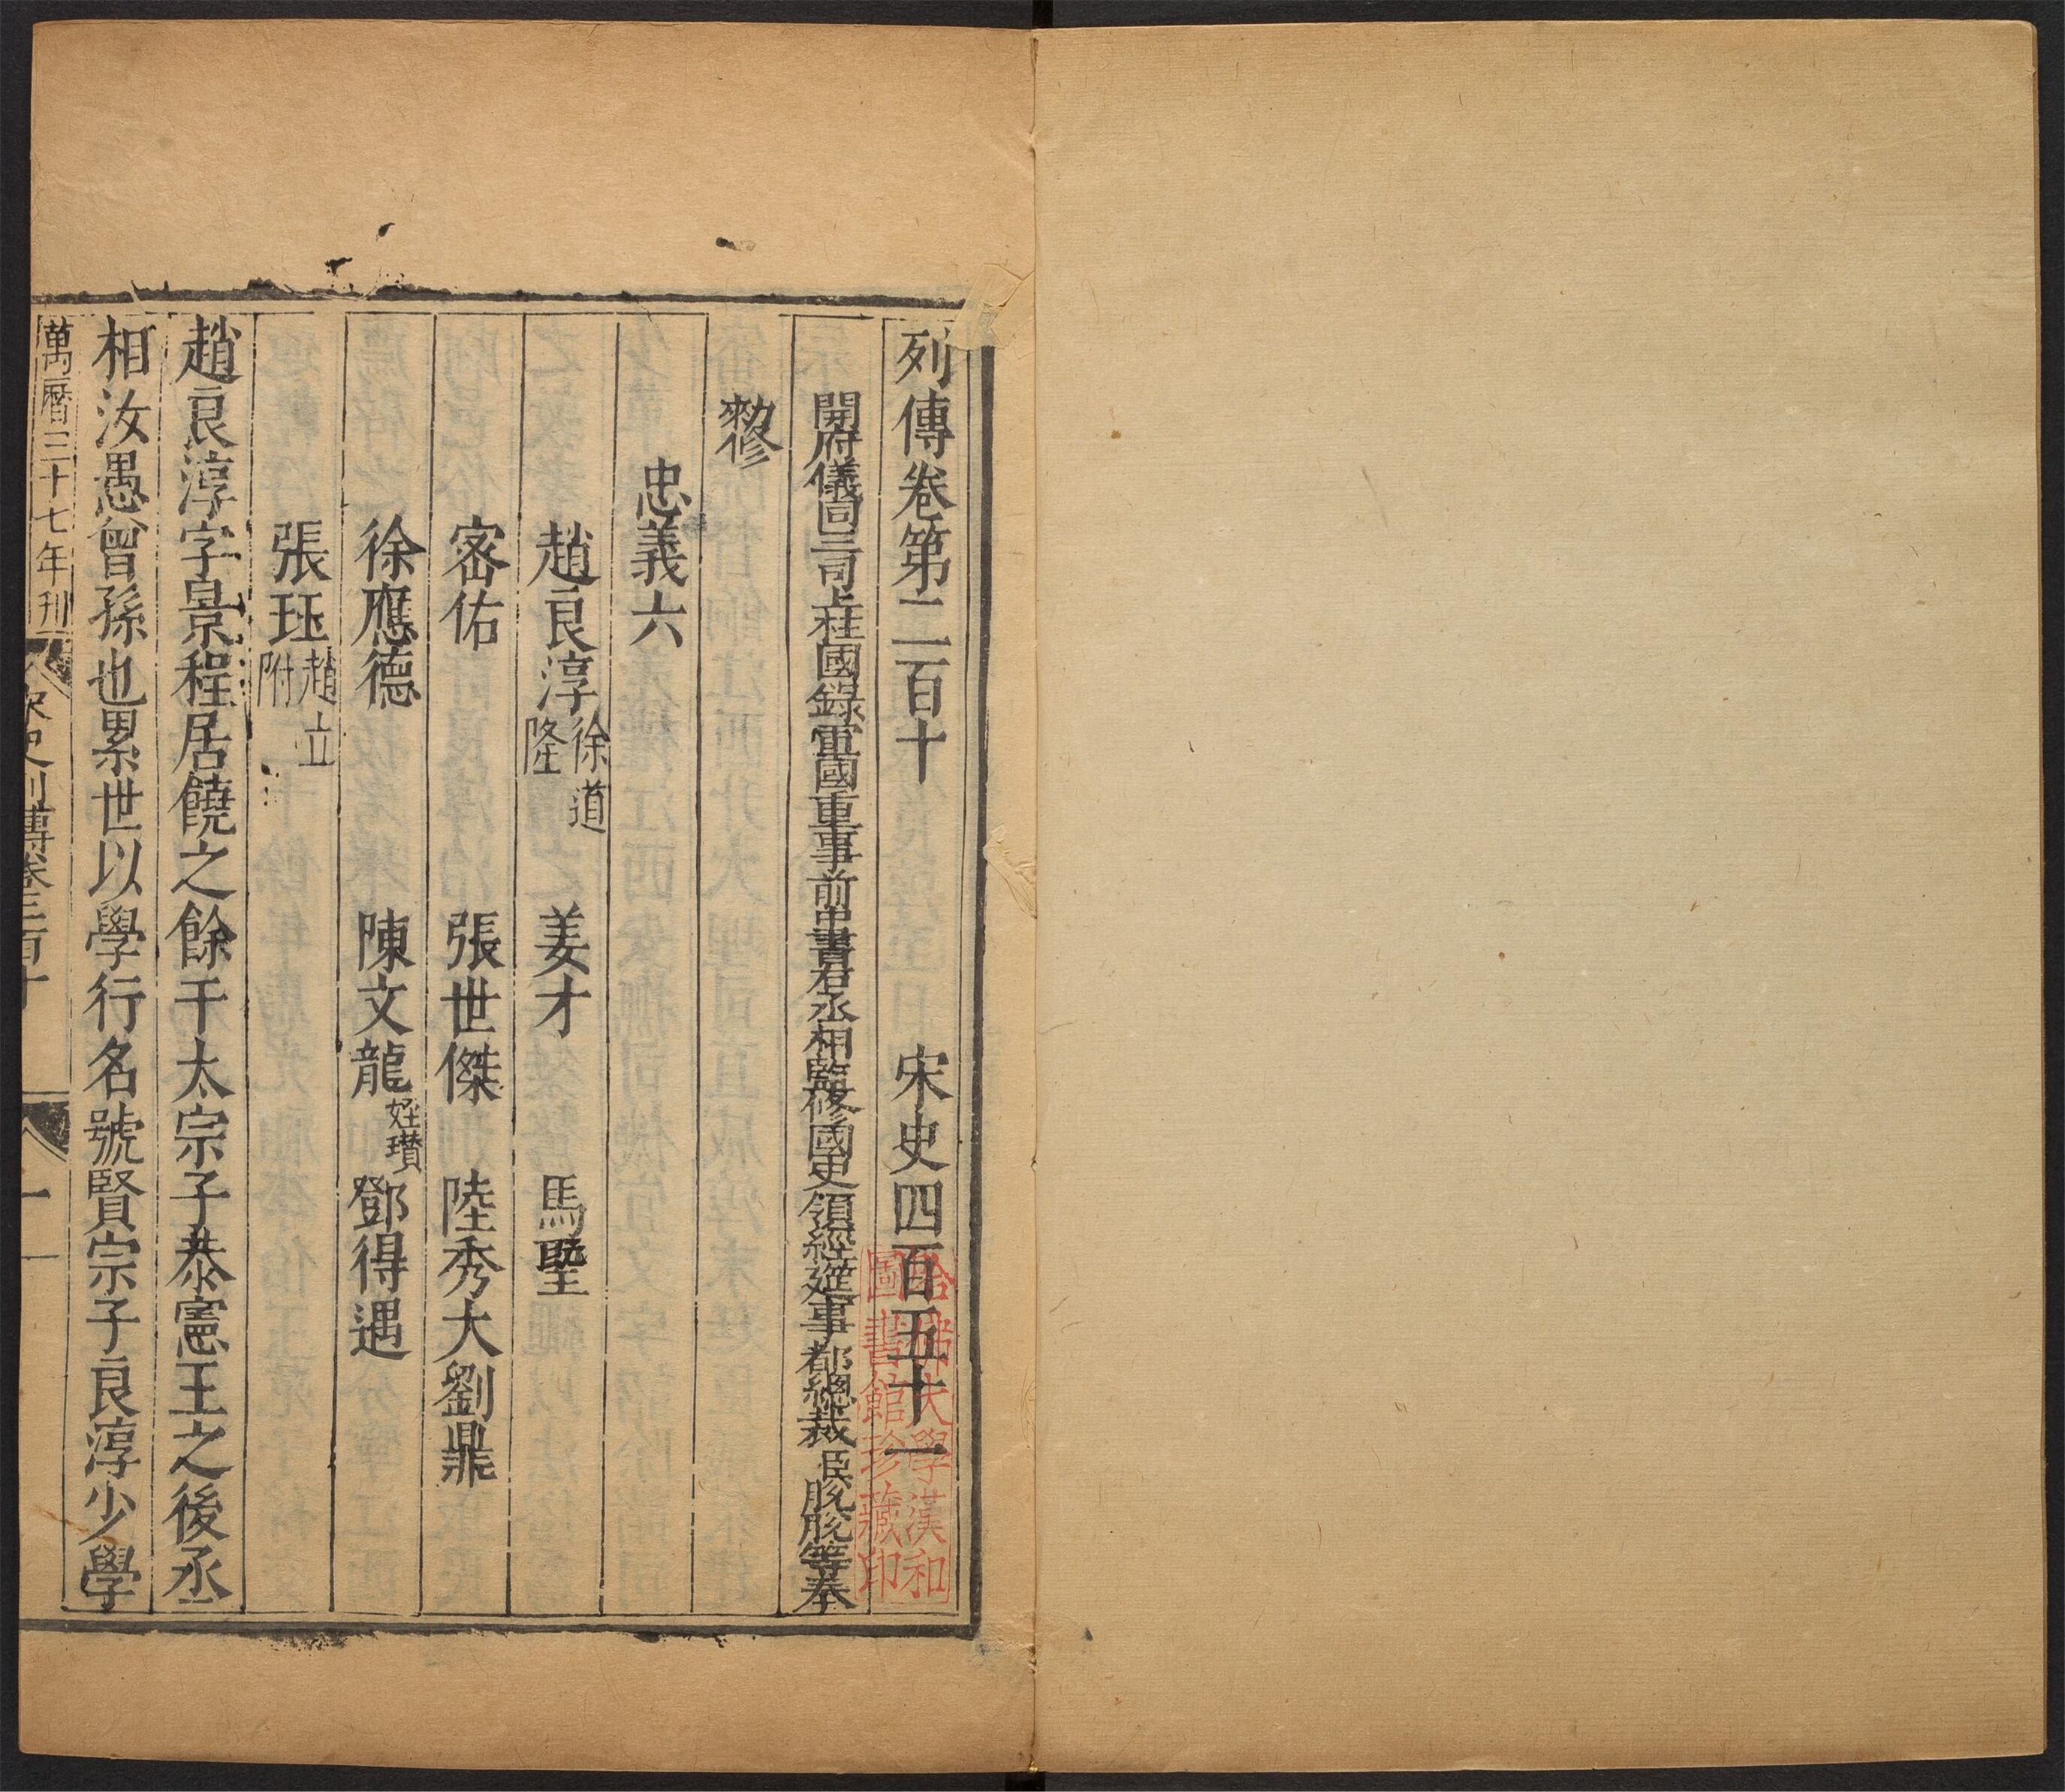 列傳卷第二百十 宋史四百五十一
開府儀同三司上柱國錄軍國重事前中書右丞相監修國史領經筵事都總裁臣脫脫等奉
勑修
忠義六
趙良淳 徐道隆 姜才 馬塈
宻佑 張世傑 陸秀夫 劉鼎
徐應德 陳文龍 姪瓚 鄧得遇
張珏 趙立附
趙良淳字景程居饒之餘干太宗子恭憲王之後丞
相汝愚曾孫也累世以學行名號賢宗子良淳少學
萬曆三十七年刊
宋史列傳卷二百十 一
哈佛大學漢和
圖書館珍藏印